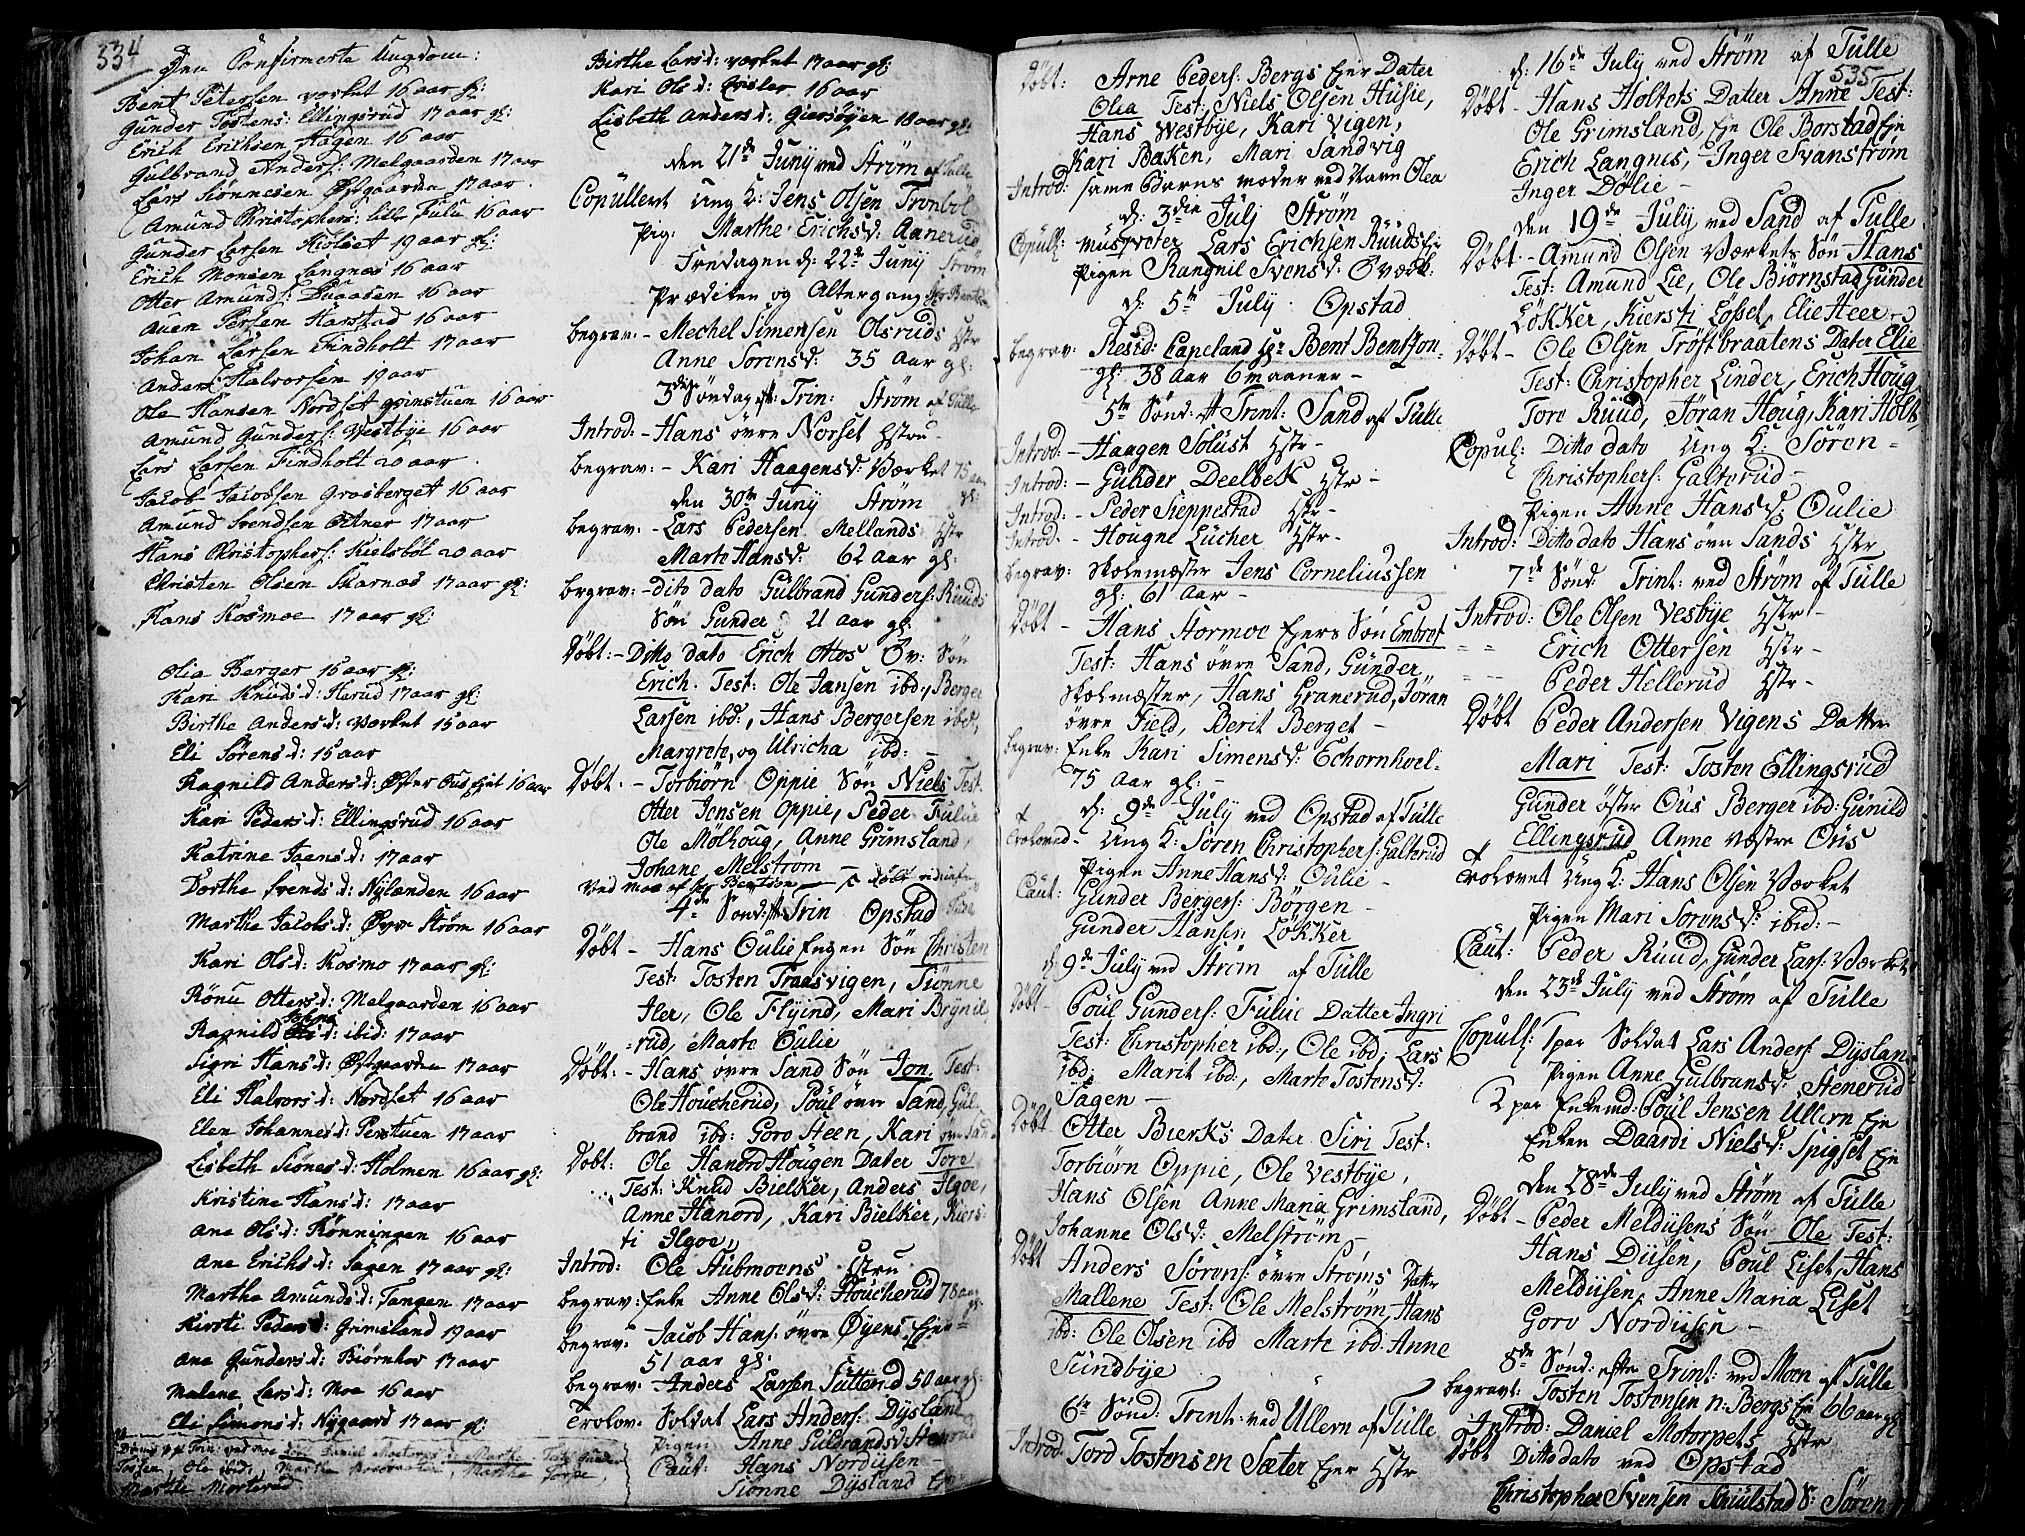 334
Den Confirmerte Ungdom:
Bent Petersen værket 16 aar gl:
Gunder Tostens: Ellingsrud 17 aar gl:
Erich Erichsen Hagen 16 aar
Gulbrand Anders: Melgaarden 17 aar
Lars Siønnesen Østgaarden 17 aar
Amund Christophers: lille Fulu 16 aar
Gunder Larsen Kiølset 19 aar gl:
Erich Monsen Langnes 16 aar
Otter Amunds: Duaasen 16 aar
Auen Persen Harstad 16 aar
Johan Larsen Findholt 17 aar
Anders Halvorsen 19 aar
Ole Hansen Nordset grinstuen 16 aar
Amund Gunders: Westbye 16 aar
Lars Larsen Findholt 20 aar
Jacob Jacobsen Grosberget 16 aar
Amund Svendsen Ørner 17 aar
Hans Christophers: Kielsböl 20 aar
Christen Olsen Skarnæs 17 aar gl:
Hans Kosmoe 17 aar gl:
Olia Berger 16 aar gl:
Kari Knudsd: Herud 17 aar gl:
Birthe Andersd: værket 15 aar
Eli Sørensd: 15 aar
Ragnild Andersd: Øster Ous Eiet 16 aar
Kari Pedersd: Ellingsrud 16 aar
Katrine Joensd: 17 aar
Dorthe Svendsd: Nylænden 16 aar
Marthe Jacobsd: Øvre Strøm 16 aar
Kari Olsd: Kosmo 17 aar gl:
Rønu Ottersd: Melgaarden 16 aar
Ragnild Johns d: ibid: 17 aar
Sigri Hansd: Østgaarden 17 aar
Eli Halvorsd: Nordset 16 aar
Elen Johannesd: Perstuen 17 aar
Lisbeth Siønesd: Holmen 16 aar gl:
Kristine Hansd: 17 aar
Ane Olsd: Rønningen 16 aar
Ane Erichsd: Sagen 17 aar gl:
Marthe Amundsd: Tangen 17 aar
Kirsti Pedersd: Grimsland 19 aar
Ane Gundersd: Biørnhov 17 aar
Malene Larsd: Moe 16 aar
Eli Simensd: Nygaard 17 aar gl:
Marthe Morterud
Birthe Larsd: værket 17 aar gl:
Kari Olsd: Eisler 16 aar
Lisbeth Andersd: Giersøyen 18 aar gl:
den 21de Junij ved Strøm af Tulle
Copulleret Ung K: Jens Olsen Tronböl
Pig: Marthe Erichsd: Aanerud
Fredagen d: 22de Juny Strøm
Prædiken og Altergang Hr Bentsen
begrav: - Mechel Simensen Olsruds Hstr
Anne Sorensd: 35 Aar gl:
3die Søndag eft: Trin: Strøm af Tulle
Introd: - Hans øvre Norset Hstru -
begrav: - Kari Haagensd: Værket 75 aar gl:
den 30te Juny Strøm
begrav: - Lars Pedersen Mellands Hstr
Marte Hansd: 62 aar gl:
begrav: - dito dato Gulbrand Gunders: Ruuds
Søn Gunder 21 aar gl:
Döbt: - Ditto dato Erich Ottos Öv: Søn
Erich. Test: Ole Jansen ibd:, Berger
Larsen ibd:, Hans Bergersen ibd,
Margrete, og Ulricha ibd: -
Döbt: - Torbiørn Oppie Søn Niels Test:
Otter Jensen Oppie, Peder Fulue
Ole Mølhoug, Anne Grimsland,
Johane Melstrøm
4de Sönd: eft Trin Opstad Tulle
Döbt - Hans Oulie Engen Søn Christen
Test: Tosten Traasvigen, Siønne
Iler, Ole Flyind, Mari Brÿnil
=rud, Marte Oulie
Döbt: - Hans övre Sand Søn Jon. Test:
Ole Houcherud, Poul övre Sand, Gul-
brand ibd: Goro Steen, Kari övre Sand
Dobt: Ole Hanord Hougen Dater Tore
Test: Knud Bielker, Anders Ilgoe,
Anne Hanord, Kari Bielker, Kiers-
ti Ilgoe,
Introd: Ole Aubmoens Hstru
begrav: Enke Anne Olsd: Houcherud 78 aar gl:
begrav: Jacob Hans: övre Øyens Eier
51 aar gl:
begrav: Anders Larsen Sutterud 50 aar gl:
Trolov: Soldat Lars Anders: Dysland
Pigen Anne Gulbrandsd Stenerud
Caut: Hans Nordiisen -
Siønne Dysland
Döbt: Arne Peders: Bergs Eier Dater
Olea Test: Niels Olsen Husie,
Hans Westbye, Kari Vigen,
Kari Baken, Mari Sandvig
Introd: samme Barns moder ved Navn Olea
d: 3die July Strøm
Copull: Musqveter Lars Erichsen Ruuds Ei
Pigen Rangnil Svensd: Ovæk:
d: 5te July Opstad
begrav: Resid: Capeland Hr Bent Bentson
gl: 38 Aar 6 maaner -
5te Sönd: eft Trint: Sand af Tulle
Introd: - Haagen Solust Hstr -
Introd: - Gunder Deelbek Hstr -
Introd: - Peder Sieppestad Hstr -
Introd: - Hougne Lücher Hstr -
begrav: Skolemæster Jens Corneliussen
gl: 61 Aar -
Döbt - Hans Stormoe Eiers Søn Embret
Test: Hans övre Sand, Gunder
Skolemæster, Hans Granerud, Jöran
övre Field, Berit Berget -
begrav: Enke Kari Simensd: Echornhoel -
75 Aar gl: -
d: 9de July ved Opstad af Tulle
Trolovede - Ung K: Søren Christophers: Galterud
Pigen Anne Hansd: Oulie -
Caut: Gunder Bergers: Börgen -
Gunder Hansen Løkker
d: 9de July ved Strøm af Tulle
Döbt - Poul Gunders: Fulue Datter Ingri
Test: Christopher ibd:, Ole ibd: Lars
ibd: Marit ibd:, Marte Tostensd:
Sagen -
Döbt Otter Bierks Dater Siri Test:
Torbiørn Oppie, Ole Vestbye,
Hans Olsen Anne Maria Grimsland,
Johanne Olsd: Melstrøm -
Döbt Anders Sörens: övre Strøms Datr
Mallene Test: Ole Melstrøm, Hans
ibd: Ole Olsen ibd Marte ibd: Anne
Sundbÿe
6te Sönd: Trint: ved Ullern af Tulle
Introd: Tord Tostensen Sæter Eier Hstr
d: 16de July ved Strøm af Tulle
535
Döbt - Hans Holtets Datter Anne Test:
Ole Grimsland, Eje Ole Borstad Eje
Erich Langnes, Inger Svanstrøm
Inger Dölie -
den 19de July ved Sand af Tulle
Döbt - Amund Olsen Værkets Søn Hans
Test: Amund Lie, Ole Biørnstad, Gunder
Løkker, Kiersti Lösset, Elie Heer -
Döbt - Ole Olsen Tröftbraatens Dater Elie
Test: Christopher Linder, Erich Houg
Tore Ruud, Jöran Houg, Kari Holt,
Copul: Ditto dato Ung K: Sören =
Christophers: Galterud -
Pigen Anne Hansd: Oulie
Introd: Ditto dato Hans övre Sands Hstr
7de Sönd: Trint: ved Strøm af Tulle
Introd: Ole Olsen Vesbÿe Hstr -
= = Erich Ottersen Hstr -
= = Peder Hellerud Hstr -
Döbt Peder Andersen Vigens Datter
Mari Test: Tosten Ellingsrud
Gunder öster Ous Berger ibd: Gunild
Ellingsrud Anne væstre Ous
Trolovet Ung K: Hans Olsen Værket
Pigen Mari Sorensd: ibid: -
Caut: Peder Ruud, Gunder Lars: Værket
den 23de July ved Strøm af Tulle
Copull: 1 par Soldat Lars Anders: Dysland
Pigen Anne Gulbransd: Stenerud
2 par Enkemd: Poul Jensen Ullern Eje
Enken Daardi Nielsd: Spigset Eje
den 28de July ved Strøm af Tulle
Döbt - Peder Meldiisens Søn Ole Test:
Hans Diisen, Poul Liset, Hans
Meldiisen, Anne Maria Liset
Goro Nordiisen -
8de Sönd: efter Trint: ved Moen af Tulle
begravt: Tosten Tostensen n: Bergs Eje 66 aar gl
Introd: Daniel Motorpets Hstr
Döbt Ditto dato ved Opstad
Christopher Svensen Skiulstad S: Søren